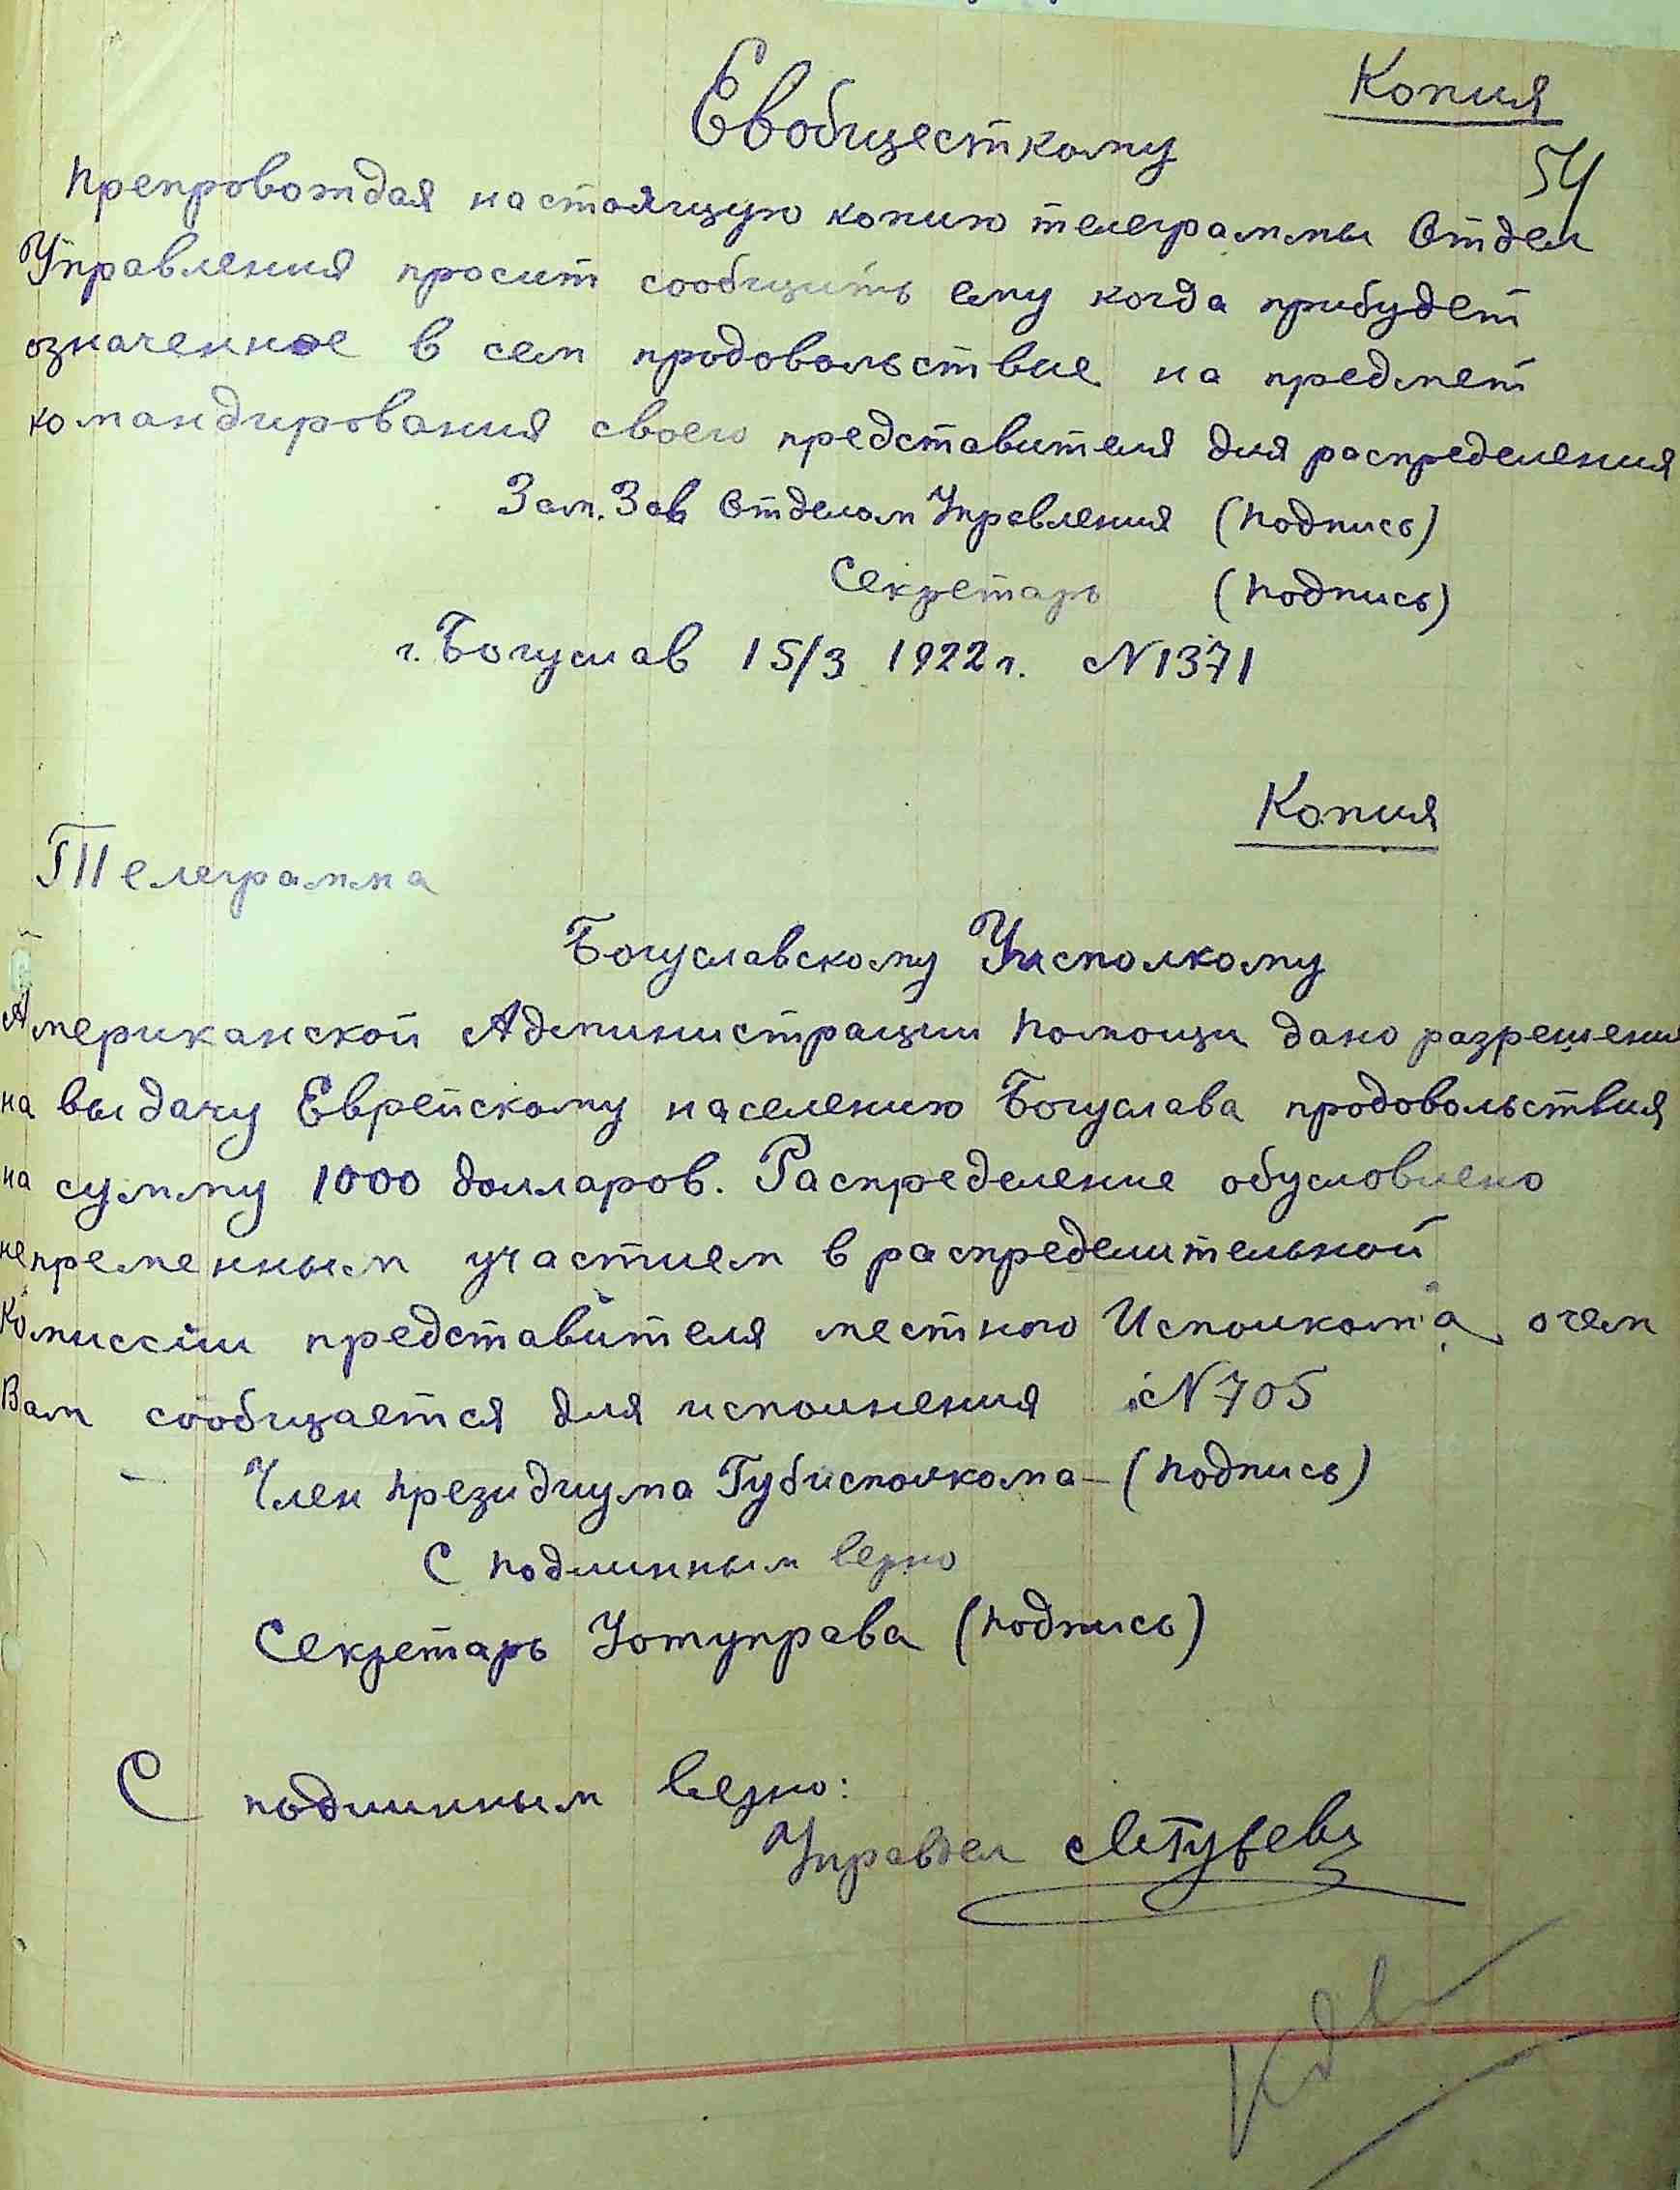 Копия
Евобщесткому
54
Препровождая настоящую копию телеграммы Отдел
Управления просит сообщить ему когда прибудет
означенное в сем продовольствие на предмет
командирования своего представителя для распределения
Зам. Зав Отделом Управления (подпись)
Секретарь (подпись)
г. Богуслав 15/3 1922 г. N 1371
Копия
Телеграмма
Богуславскому Уисполкому
Американской Администрации помощи дано разрешение
на выдачу Еврейскому населению Богуслава продовольствия
на сумму 1000 долларов. Распределение обусловлено
непременным участием в распределительной
Комиссии представителя местного Исполкома, о чем
Вам сообщается для исполнения N 705
Член президиума Губисполкома – (подпись)
С подлинным верно
Секретарь Уотуправа (подпись)
С подлинным верно:
Управдел